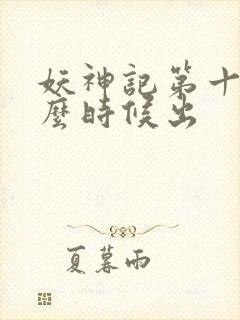 妖神記第十
麼時候出
夏暮雨